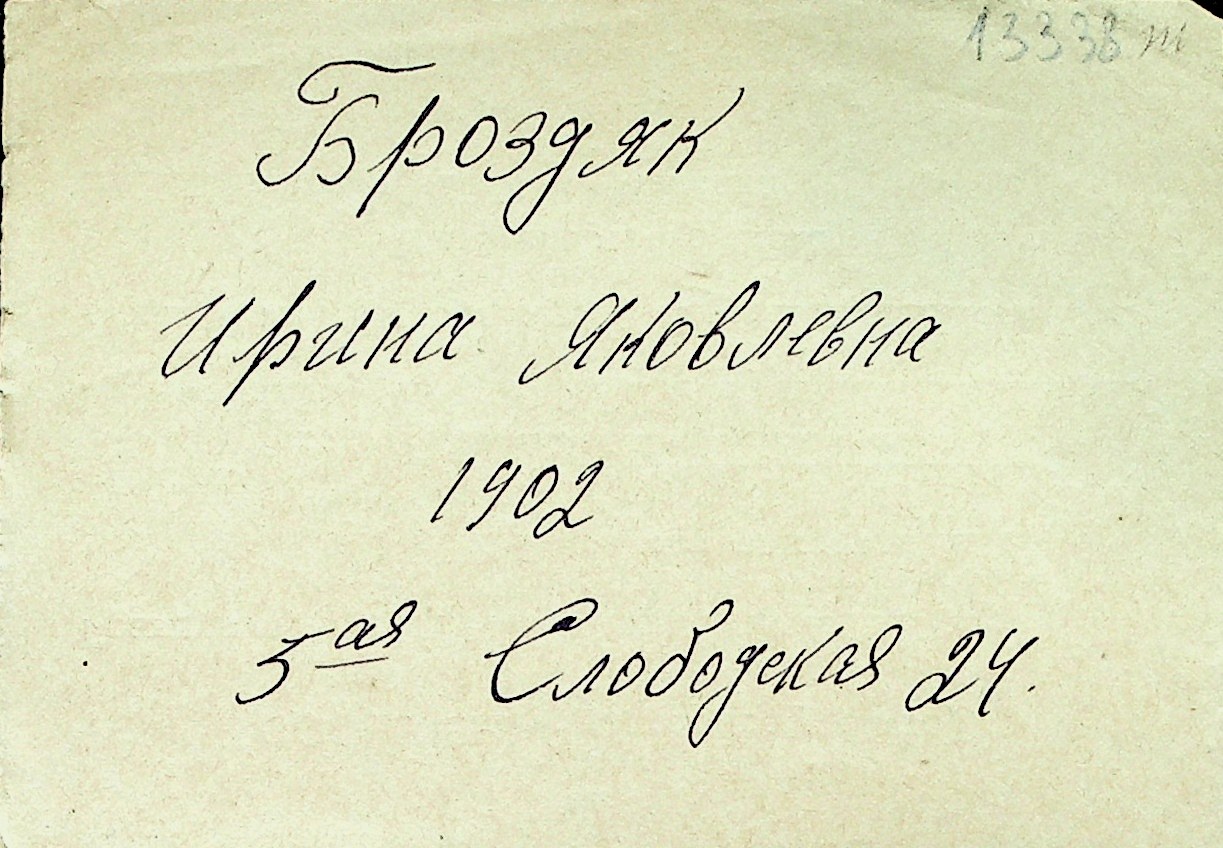 13338 т
Броздяк
Ирина Яковлевна
1902
5ая Слободская 24.